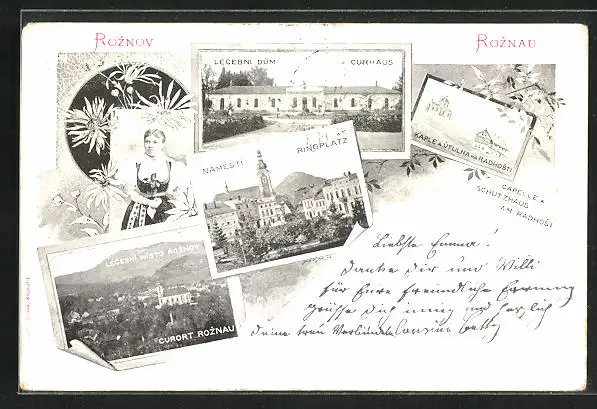 ROŽNOV
ROŽNAU
LÉČEBNÍ DŮM
CURHAUS
NÁMĚSTÍ
RINGPLATZ
KAPLE A ÚTULNA NA RADHOŠTI
CAPELLE
SCHUTZHAUS
AM RADHOŠT
LÉČEBNÍ MÍSTO ROŽNOV
CURORT ROŽNAU
Liebste Emma!
Danke dir und Willi
für Eure freundliche
grüsse dich innig und herzlich
deine treu Cousine Betty